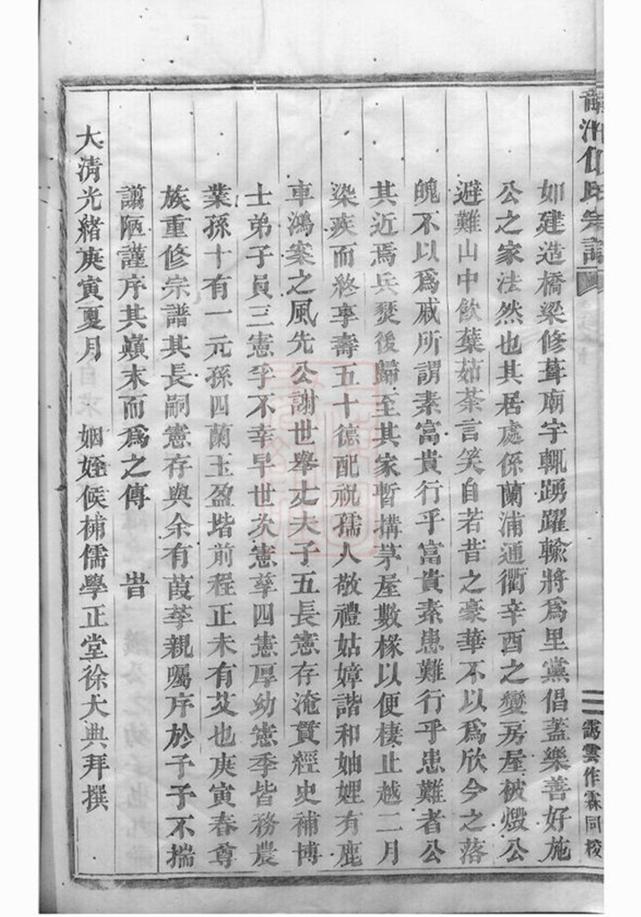 氏宗譜
靄雲作霖同校
如建造橋梁修葺廟宇輒踴躍輸將爲里黨倡蓋樂善好施
公之家法然也其居處係蘭浦通衢辛酉之變房屋被燬公
避難山中飲蘖茹茶言笑自若昔之豪華不以爲欣今之落
魄不以爲戚所謂素富貴行乎富貴素患難行乎患難者公
其近焉兵燹後歸至其家暫搆茅屋數椽以便棲止越二月
染疾而終享壽五十德配祝孺人敬禮姑嫜諧和妯娌有鹿
車鴻案之風先公謝世舉丈夫子五長憲存淹貫經史補博
士弟子員三憲孚不幸早世次憲孳四憲厚幼憲季皆務農
業孫十有一元孫四蘭玉盈堦前程正未有艾也庚寅春尊
族重修宗譜其長嗣憲存與余有葭莩親屬序於予予不揣
譾陋謹序其巔末而爲之傳 旹
大清光緒庚寅夏月 姻姪候補儒學正堂徐大典拜撰